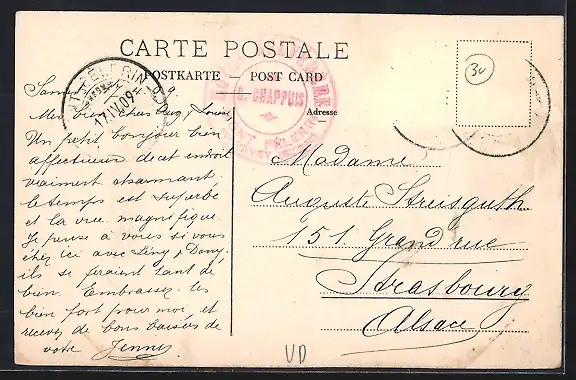 CARTE POSTALE
POSTKARTE — POST CARD
Adresse
30
17.IV.09
CHAPPUIS
Mes bien chers Aug, Louise,
Un petit bonjour bien
affectueux de cet endroit
vraiment charmant,
le temps est superbe
et la vue magnifique.
Je pense à vous si vous
étiez ici avec Liny, Dany,
ils se feraient tant de
bien. Embrassez les
bien fort pour moi et
recevez de bons baisers de
votre Jenney
Madame
Auguste Streisguth
151 Grand'rue
Strasbourg
Alsace
VD